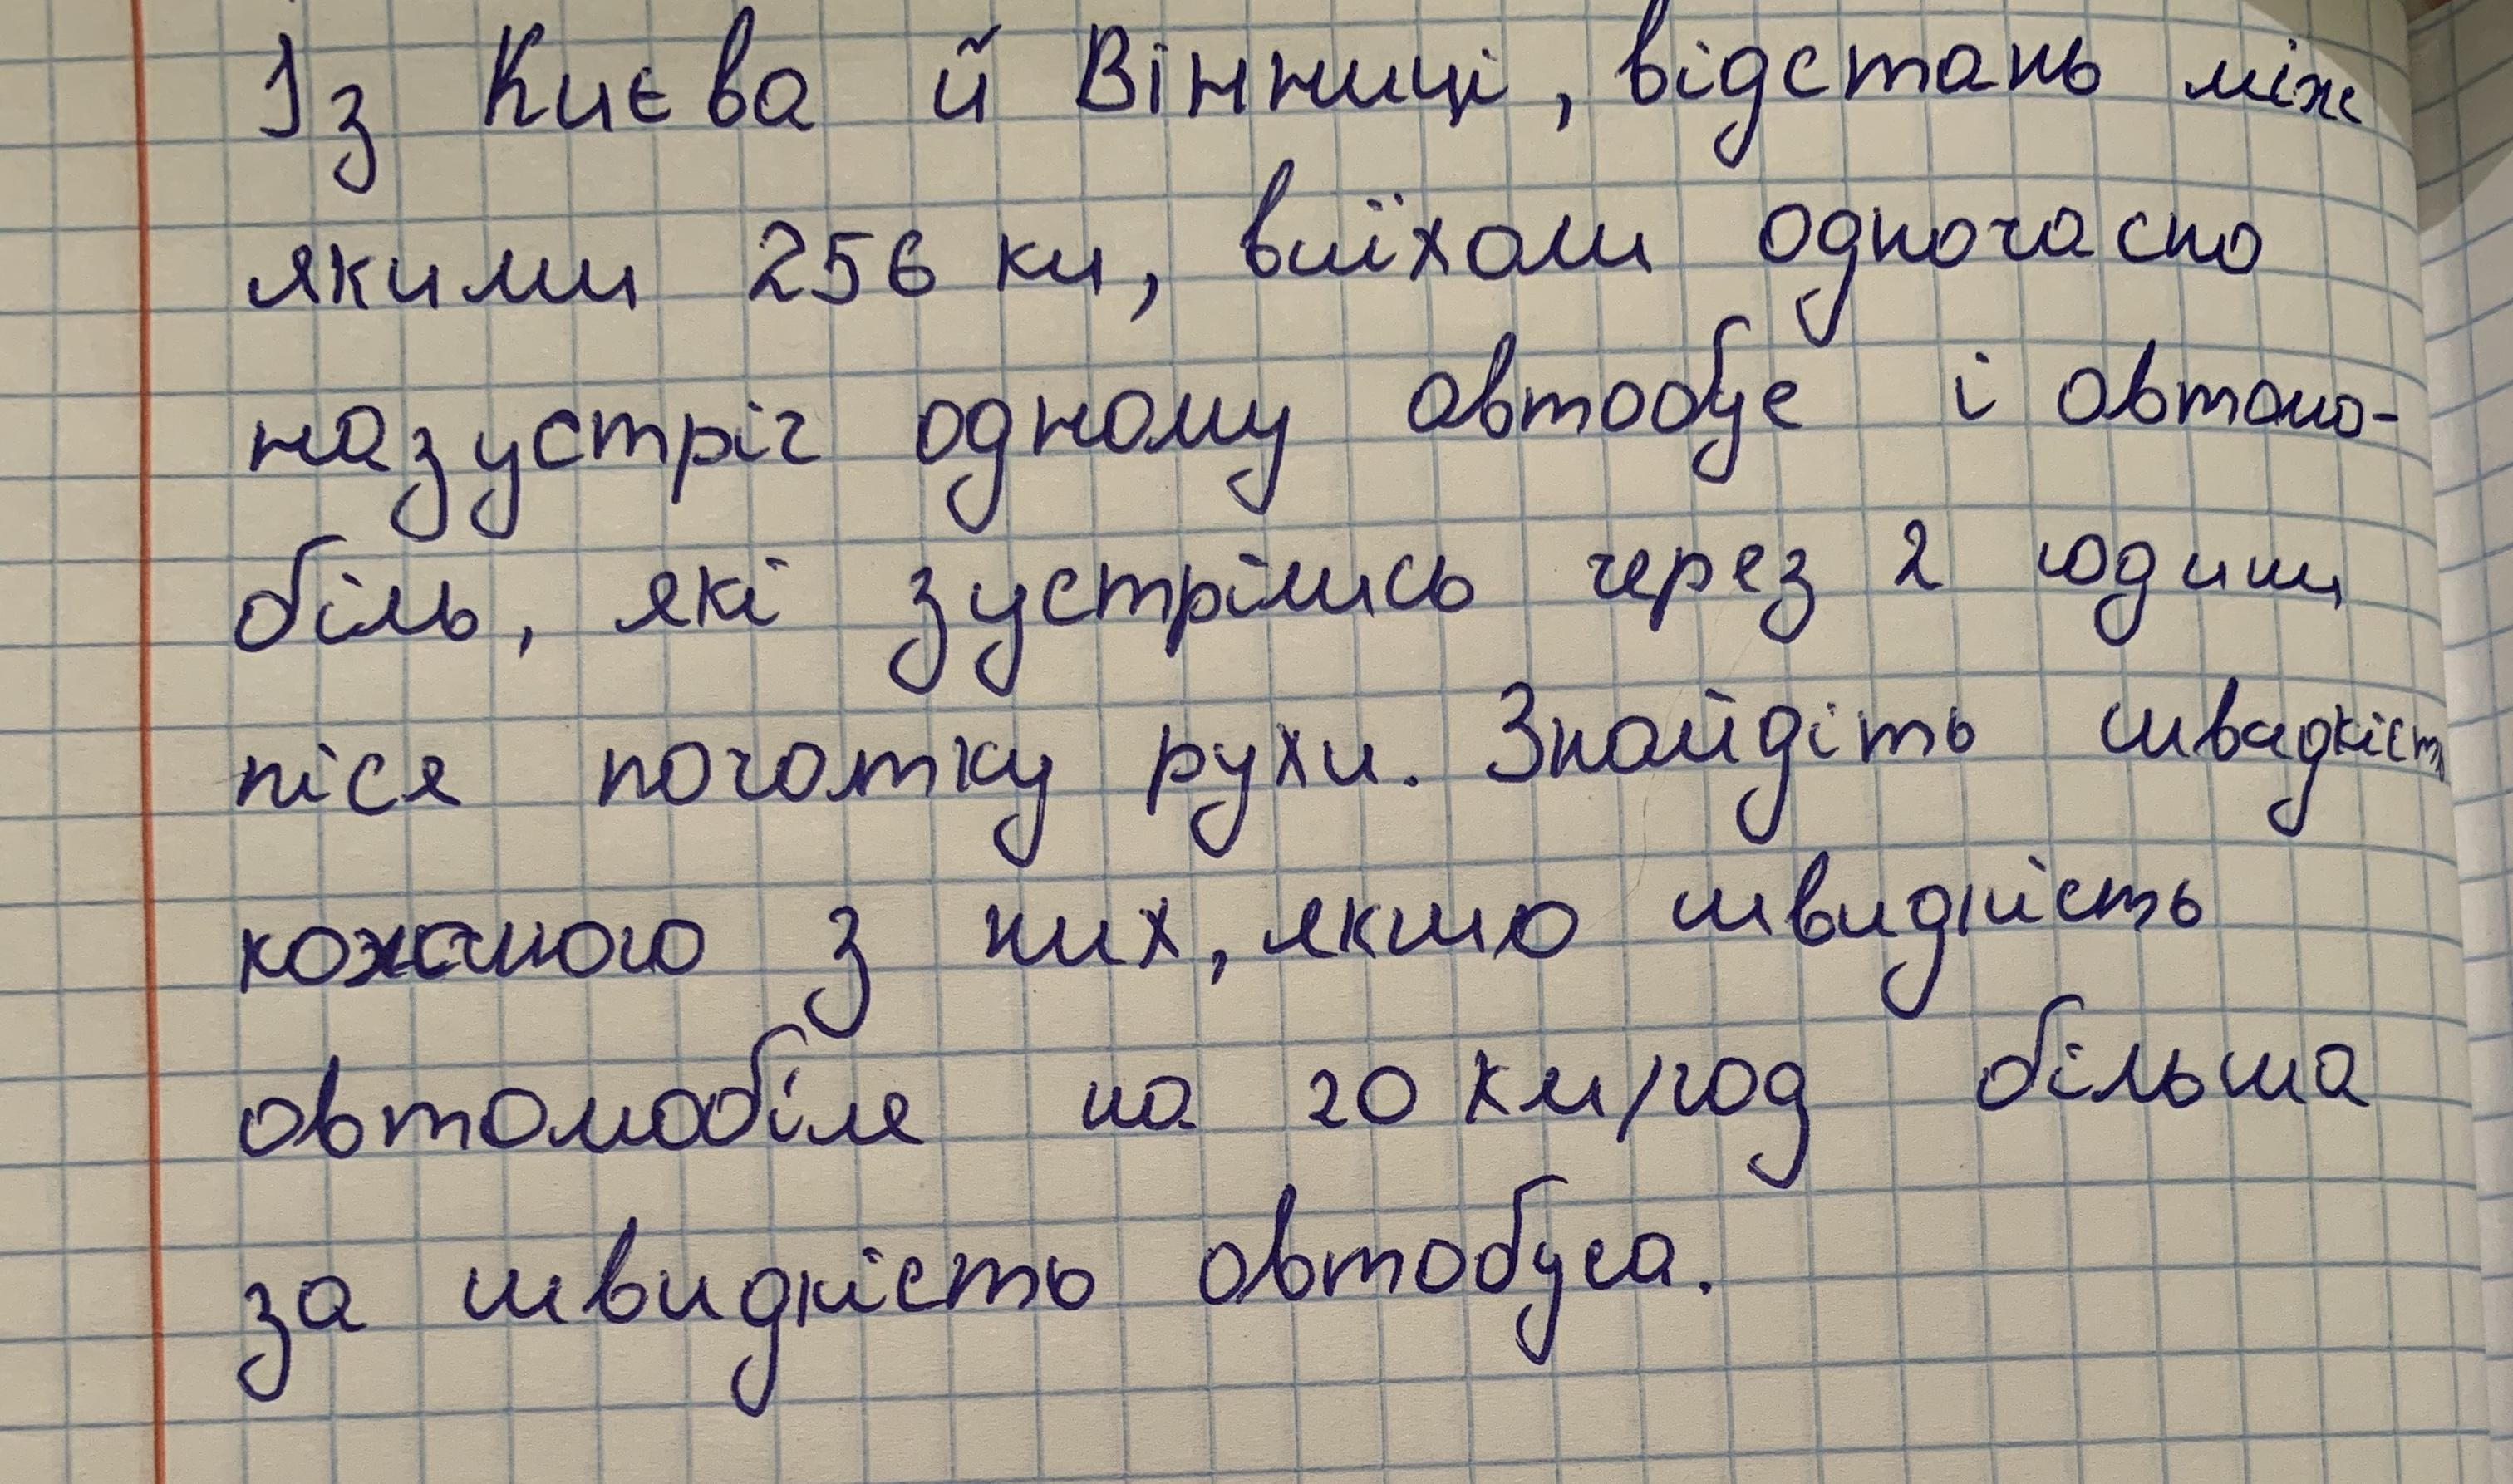 Із Києва й Вінниці, відстань між
якими 256 км, виїхали одночасно
назустріч одному автобус і автомо-
біль, які зустрілись через 2 години
піся початку рухи. Знайдіть швидкість
кожного з них, якшо швидкість
автомобіля на 20 км/год більша
за швидкість автобуса.